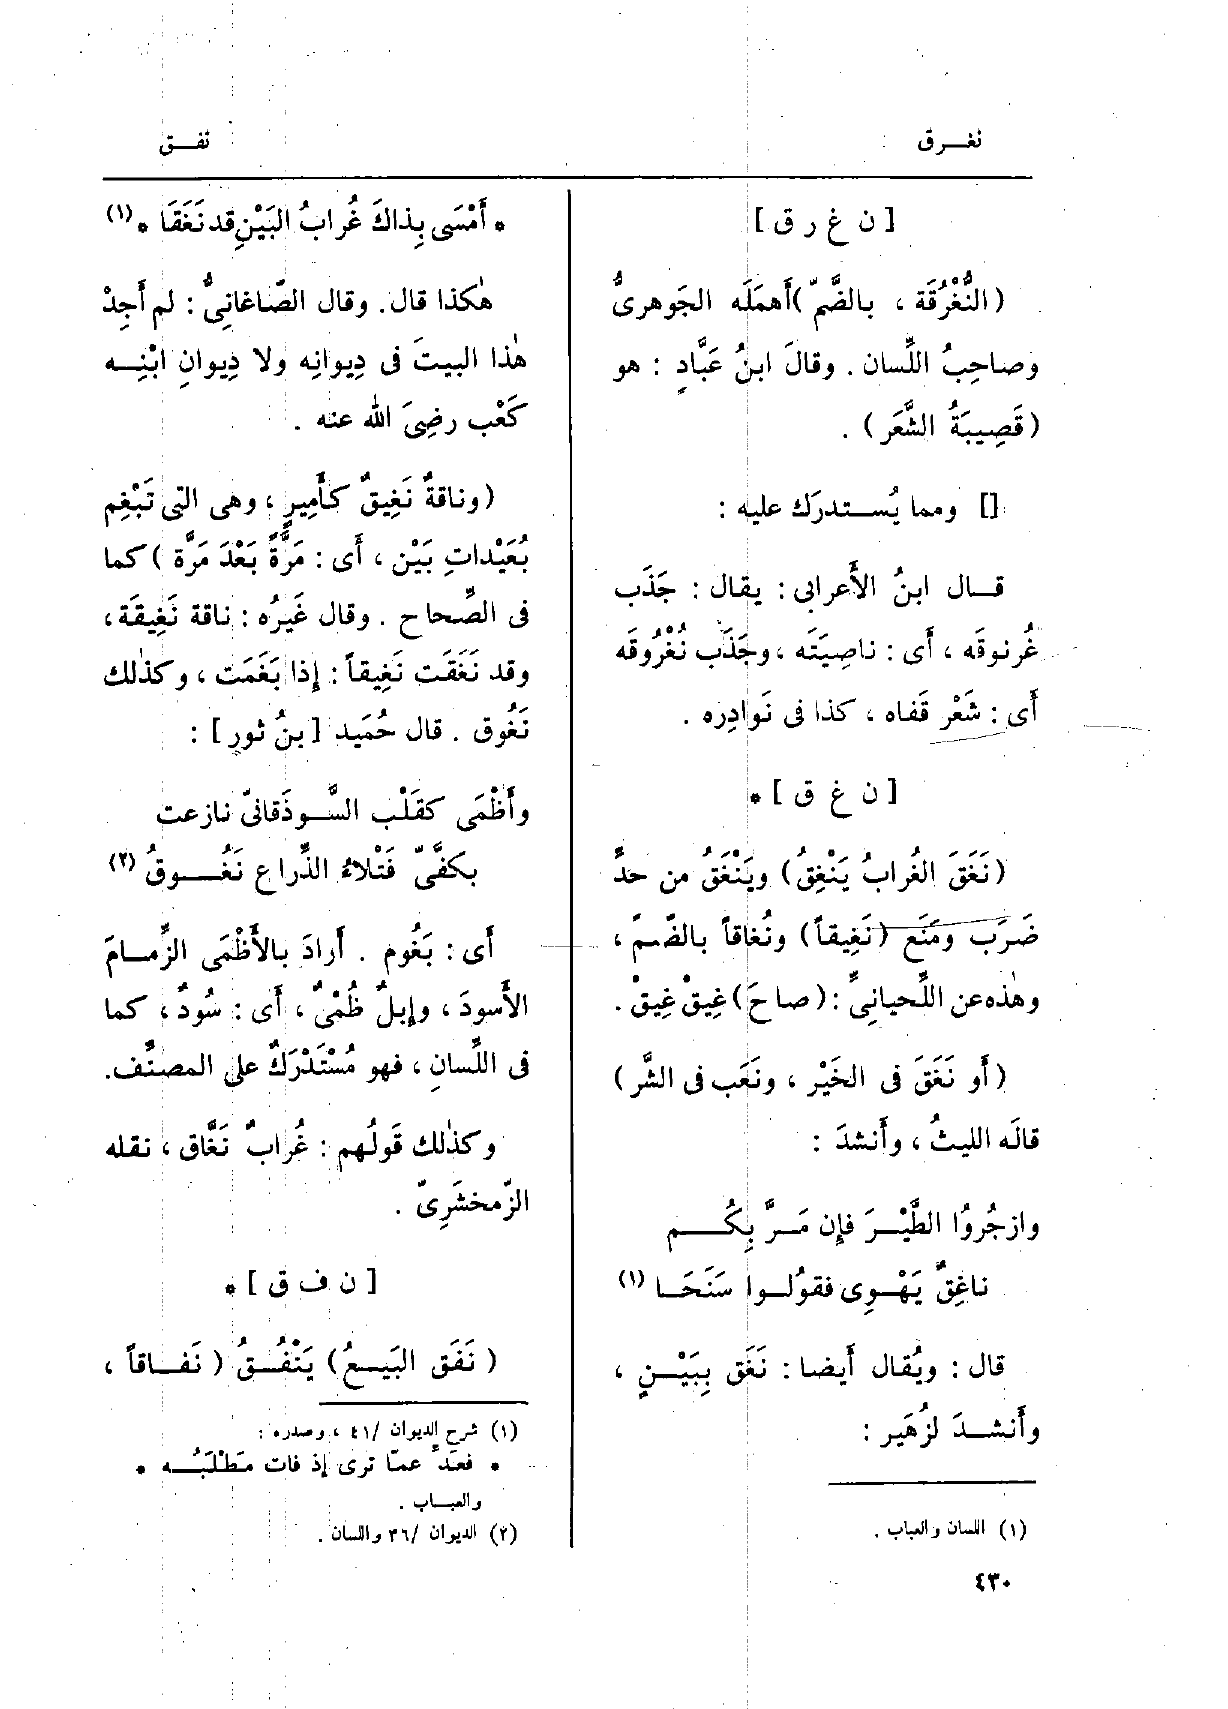 نغـرق
نفـق
[ ن غ ر ق ]
(النُّغْرُقَة ، بالضَّمّ) أَهمَلَه الجَوهرىُّ
وصاحِبُ اللِّسان . وقالَ ابنُ عَبَّادٍ : هو
(قَصِيبَةُ الشَّعَر) .
[] ومما يُسـتدرَك عليه :
قـال ابنُ الأَعرابى : يقال : جَذَب
غُرنوقَه ، أَى : ناصِيَتَه ، وجَذَب نُغْرُوقَه
أَى : شَعْر قَفاه ، كذا فى نَوادِره .
[ ن غ ق ] *
(نَغَقَ الغُرابُ يَنْغِقُ) ويَنْغَقُ من حدِّ
ضَرَب ومَنَع (نَغِيقاً) ونُغاقاً بالضّمِّ ،
وهٰذه عن اللِّحيانىِّ : (صاحَ) غِيقْ غِيقْ .
(أَو نَغَقَ فى الخَيْر ، ونَعَب فى الشَّر)
قالَه الليثُ ، وأَنشدَ :
وازجُروُا الطَّيْـرَ فإِن مَـرَّ بِكُـــم
ناغِقٌ يَهْـوِى فقوُلـوا سَنَحَـا (١)
قال : ويُقال أَيضا : نَغَق بِبَيْــنٍ ،
وأَنشـدَ لزُهَير :
(١) اللسان والعباب .
٤٣٠
* أَمْسَى بِذاكَ غُرابُ البَيْنِ قد نَغَقَا * (١)
هٰكذا قال. وقال الصّاغانِىُّ : لم أَجِدْ
هٰذا البيتَ فى دِيوانِه ولا دِيوانِ ابْنِــه
كَعْب رضِىَ اللّٰه عنه .
(وناقةٌ نَغِيقٌ كأَمِيرٍ ، وهى التى تَبْغِم
بُعَيْداتِ بَيْن ، أَى : مَرَّةً بَعْدَ مَرَّة ) كما
فى الصِّحاح . وقال غَيرُه : ناقة نَغِيقَة ،
وقد نَغَقَت نَغِيقاً : إِذا بَغَمَت ، وكذٰلك
نَغُوق . قال حُمَيد [بنُ ثورٍ] :
وأَظْمَى كقَلْب السَّـوذَقانِىّ نازعت
بكفَّىّ فَتْلاءُ الذِّراع نَغُـــوقُ (٢)
أَى : بَغُوم . أَرادَ بالأَظْمَى الزِّمـامَ
الأَسودَ ، وإِبلٌ ظُمْىٌ ، أَى : سُودٌ ، كما
فى اللِّسانِ ، فهو مُسْتَدْرَكٌ على المصنِّف.
وكذٰلك قَولُهم : غُرابٌ نَغَّاق ، نقله
الزَّمخشَرِىّ .
[ ن ف ق ] *
( نَفَق البَيـعُ) يَنْفُـقُ ( نَفـاقاً ،
(١) شرح الديوان /٤١ ، وصدره :
* فعَدِّ عمّا ترى إذ فات مَطْلَبُــه *
والعبـاب .
(٢) الديوان /٣٦ واللسان .